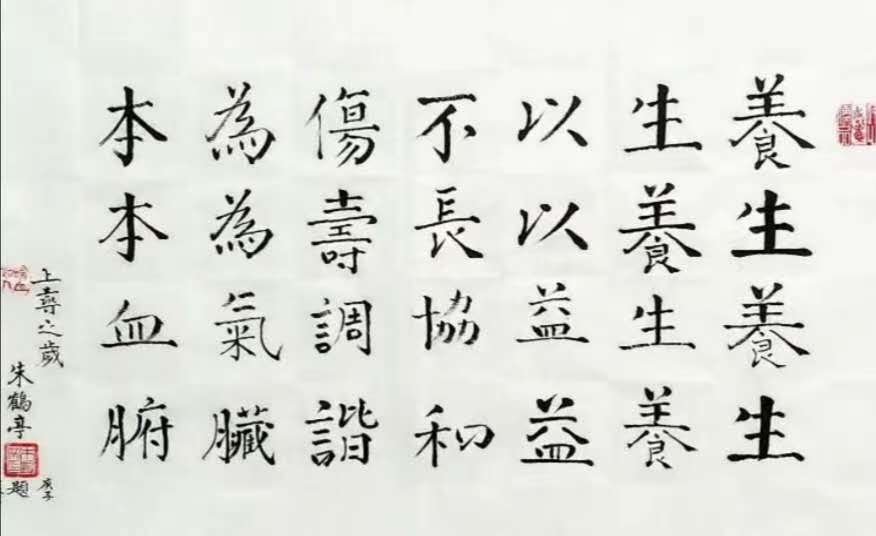 養生以不傷為本
生養以長壽為本
養生益協調氣血
生養益和諧臟腑
上壽之歲
朱鶴亭題
庚子